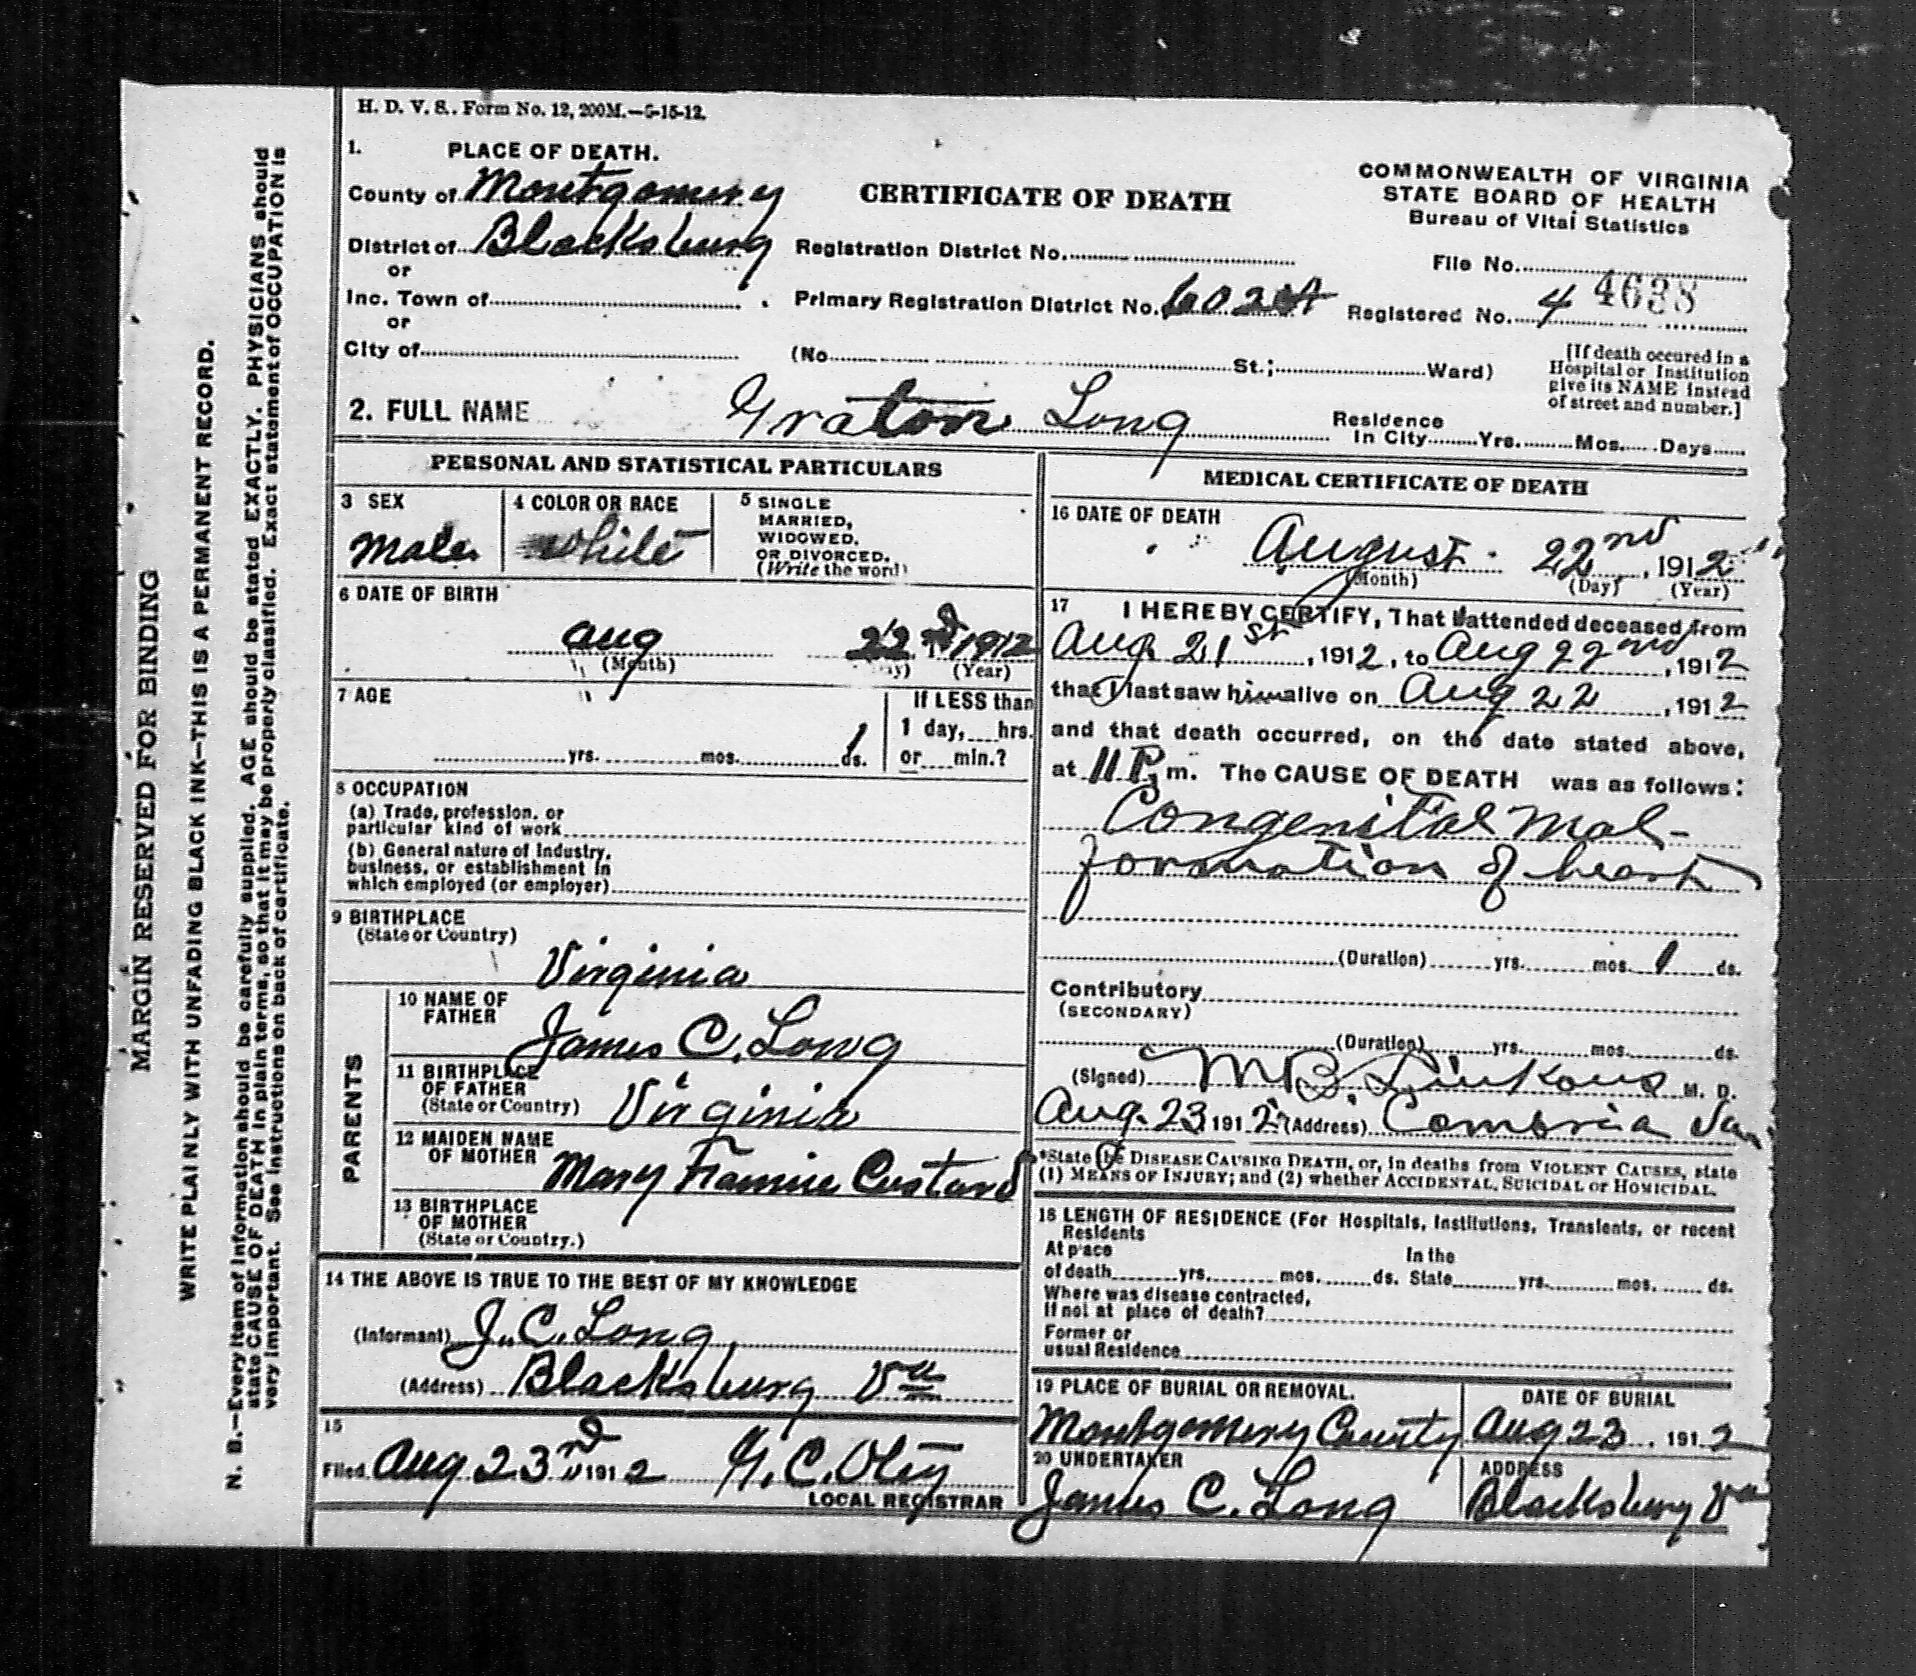 H. D. V. S.. Form No. 12, 200M.—6-15-12.
1. PLACE OF DEATH.
County of Montgomery
District of Blacksburg
or
Inc. Town of
or
City of
CERTIFICATE OF DEATH
Registration District No.
Primary Registration District No. 602
(No. St.; Ward)
COMMONWEALTH OF VIRGINIA
STATE BOARD OF HEALTH
Bureau of Vital Statistics
File No.
4638
Registered No. 4
[If death occured in a
Hospital or Institution
give its NAME instead
of street and number.]
2. FULL NAME Graton Long
Residence
In City Yrs. Mos. Days
PERSONAL AND STATISTICAL PARTICULARS
3 SEX
Male
4 COLOR OR RACE
White
5 SINGLE
MARRIED,
WIDOWED,
OR DIVORCED.
(Write the word)
6 DATE OF BIRTH
Aug 22 1912
(Month) (Year)
7 AGE
yrs. mos. 1 ds.
If LESS than
1 day, hrs.
or min.?
8 OCCUPATION
(a) Trade, profession, or
particular kind of work
(b) General nature of Industry,
business, or establishment in
which employed (or employer)
9 BIRTHPLACE
(State or Country)
Virginia
PARENTS
10 NAME OF
FATHER
James C. Long
11 BIRTHPLACE
OF FATHER
(State or Country) Virginia
12 MAIDEN NAME
OF MOTHER
Mary Fannie Custard
13 BIRTHPLACE
OF MOTHER
(State or Country.)
14 THE ABOVE IS TRUE TO THE BEST OF MY KNOWLEDGE
(Informant) J. C. Long
(Address) Blacksburg Va
15
Filed Aug 23rd 1912
LOCAL REGISTRAR
MEDICAL CERTIFICATE OF DEATH
16 DATE OF DEATH
August 22nd, 1912
(Month) (Day) (Year)
17 I HEREBY CERTIFY, That I attended deceased from
Aug. 21st, 1912, to Aug 22nd, 1912
that I last saw him alive on Aug 22, 1912
and that death occurred, on the date stated above,
at 11 P. m. The CAUSE OF DEATH was as follows:
Congenital Mal-
formation of heart
(Duration) yrs. mos. 1 ds.
Contributory
(SECONDARY)
(Duration) yrs. mos. ds.
(Signed) M B. Linkous M. D.
Aug. 23 1912 (Address) Cambria Va.
*State the DISEASE CAUSING DEATH, or, in deaths from VIOLENT CAUSES, state
(1) MEANS OF INJURY; and (2) whether ACCIDENTAL, SUICIDAL or HOMICIDAL.
18 LENGTH OF RESIDENCE (For Hospitals, Institutions, Transients, or recent
Residents
At place
of death yrs. mos. ds.
In the
State yrs. mos. ds.
Where was disease contracted,
If not at place of death?
Former or
usual Residence
19 PLACE OF BURIAL OR REMOVAL.
Montgomery County
DATE OF BURIAL
Aug 23 1912
20 UNDERTAKER
James C. Long
ADDRESS
Blacksburg Va
MARGIN RESERVED FOR BINDING
WRITE PLAINLY WITH UNFADING BLACK INK—THIS IS A PERMANENT RECORD.
N. B.—Every item of information should be carefully supplied. AGE should be stated EXACTLY. PHYSICIANS should
state CAUSE OF DEATH in plain terms, so that it may be properly classified. Exact statement of OCCUPATION is
very important. See instructions on back of certificate.